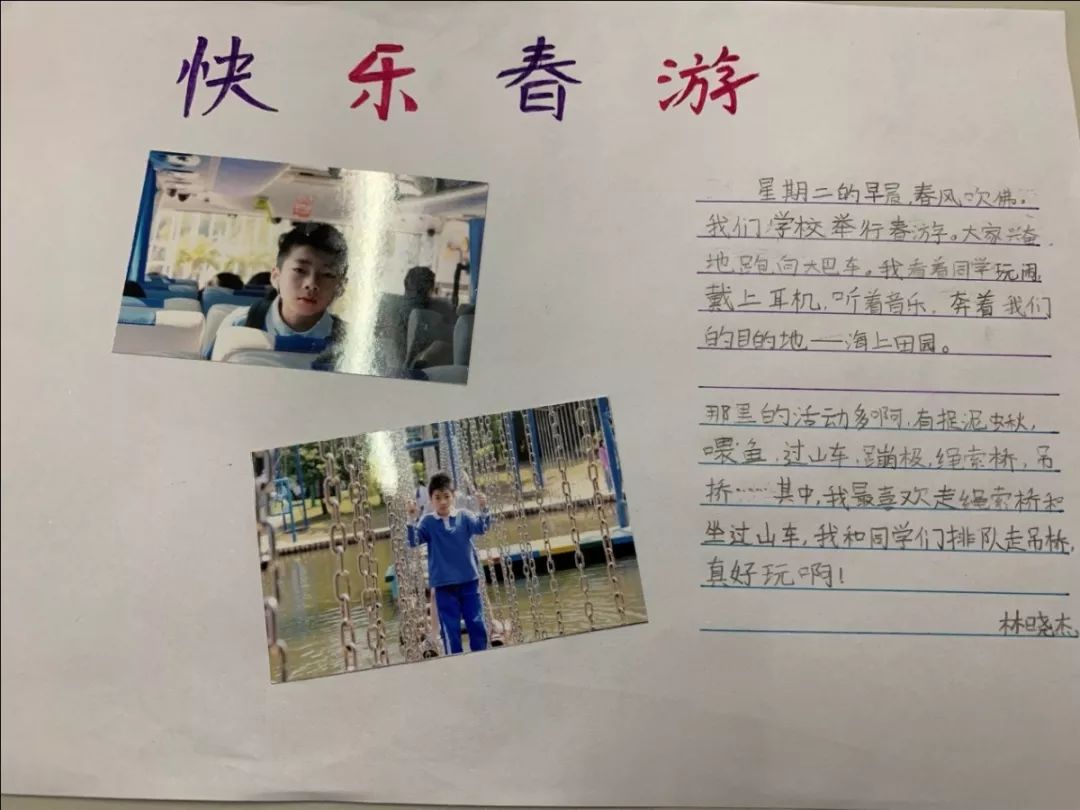 快乐春游
星期二的早晨,春风吹佛。
我们学校举行春游。大家兴奋
地跑向大巴车。我看着同学玩闹,
戴上耳机,听着音乐,奔着我们
的目的地——海上田园。
那里的活动多啊,有捉泥虫秋,
喂鱼,过山车,蹦极,绳索桥,吊
桥……其中,我最喜欢走绳索桥和
坐过山车,我和同学们排队走吊桥,
真好玩啊!
林晓杰